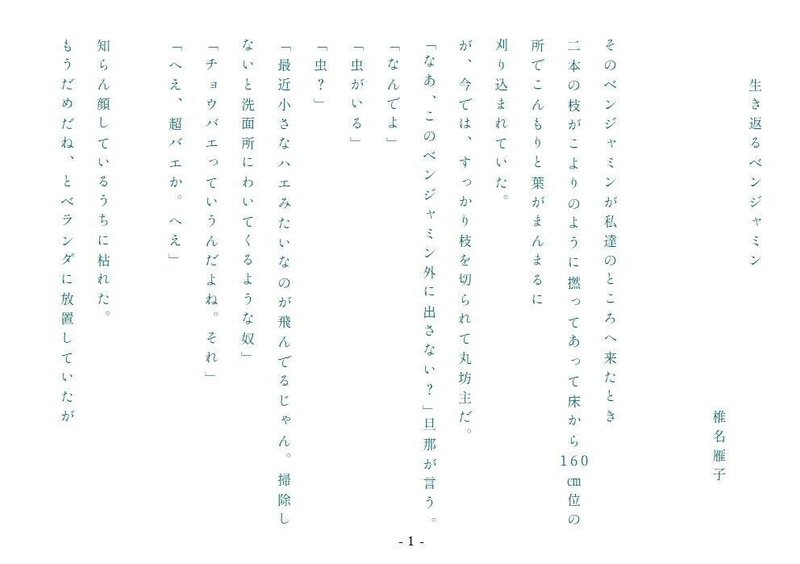 生き返るベンジャミン
椎名雁子
そのベンジャミンが私達のところへ来たとき
二本の枝がこよりのように撚ってあって床から160㎝位の
所でこんもりと葉がまんまるに
刈り込まれていた。
が、今では、すっかり枝を切られて丸坊主だ。
「なあ、このベンジャミン外に出さない?」旦那が言う。
「なんでよ」
「虫がいる」
「虫?」
「最近小さなハエみたいなのが飛んでるじゃん。掃除し
ないと洗面所にわいてくるような奴」
「チョウバエっていうんだよね。それ」
「へえ、超バエか。へえ」
知らん顔しているうちに枯れた。
もうだめだね、とベランダに放置していたが
- 1 -